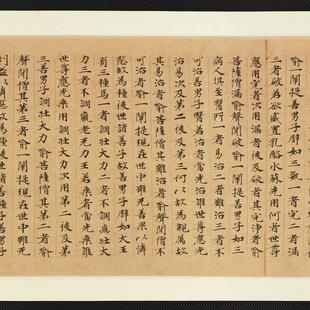 喻一闡提善男子譬如三器一者完二者漏
三者破若欲盛置乳酪水蘇先用何者世尊
應用完者次用漏後及破者其完淨者喻
菩薩僧漏喻聲聞破喻一闡提善男子如三
病人俱至醫所一者易治二者難治三者不
可治善男子醫若治者當先治誰世尊應先
治易次及第二後及第三何以故為親屬故
其易治者喻菩薩僧其難治者喻聲聞僧不
可治者喻一闡提現在世中雖无善果以憐
愍故為種後世諸善子故善男子譬如大王
有三種馬一者調壯大力二者不調齒壯大
力三者不調羸老无力王若乘者當先乘誰
世尊應先乘用調壯大力次用第二後及第
三善男子調壯大力喻菩薩僧其第二者喻
聲聞僧其第三者喻一闡提現在世中雖无
利益以憐愍故為種後世諸善種子善男子